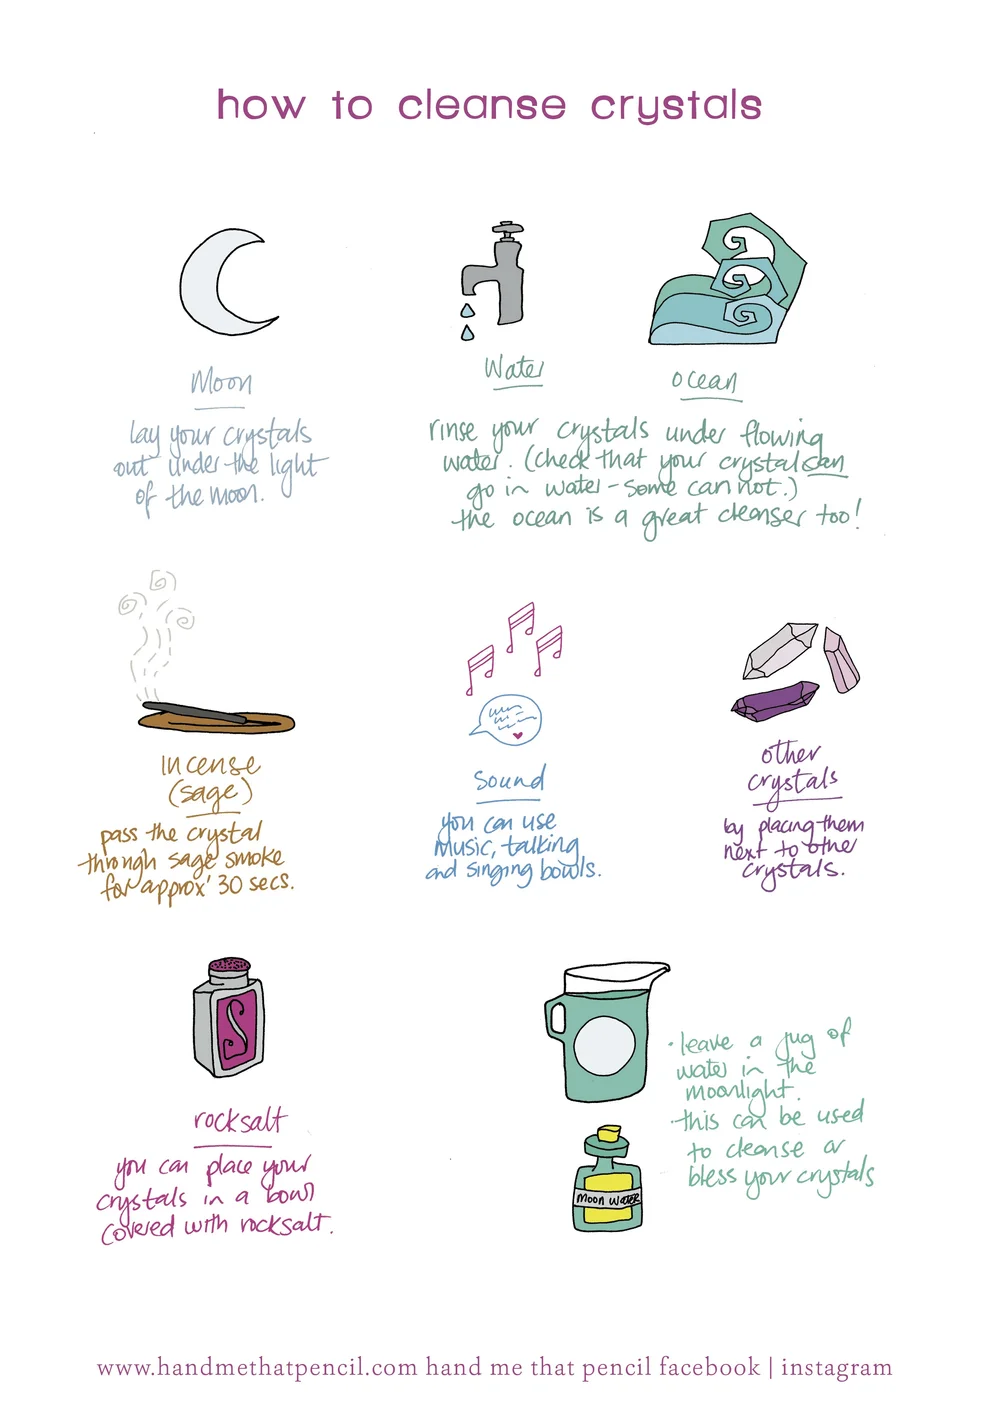 how to cleanse crystals
Moon
lay your crystals
out under the light
of the moon.
Water
ocean
rinse your crystals under flowing
water. (check that your crystal can
go in water - some can not.)
the ocean is a great cleanser too!
incense
(sage)
pass the crystal
through sage smoke
for approx' 30 secs.
sound
you can use
music, talking
and singing bowls.
other
crystals
by placing them
next to other
crystals.
S
rocksalt
you can place your
crystals in a bowl
covered with rocksalt.
· leave a jug of
water in the
moonlight.
· this can be used
to cleanse or
bless your crystals
Moon Water
www.handmethatpencil.com hand me that pencil facebook | instagram